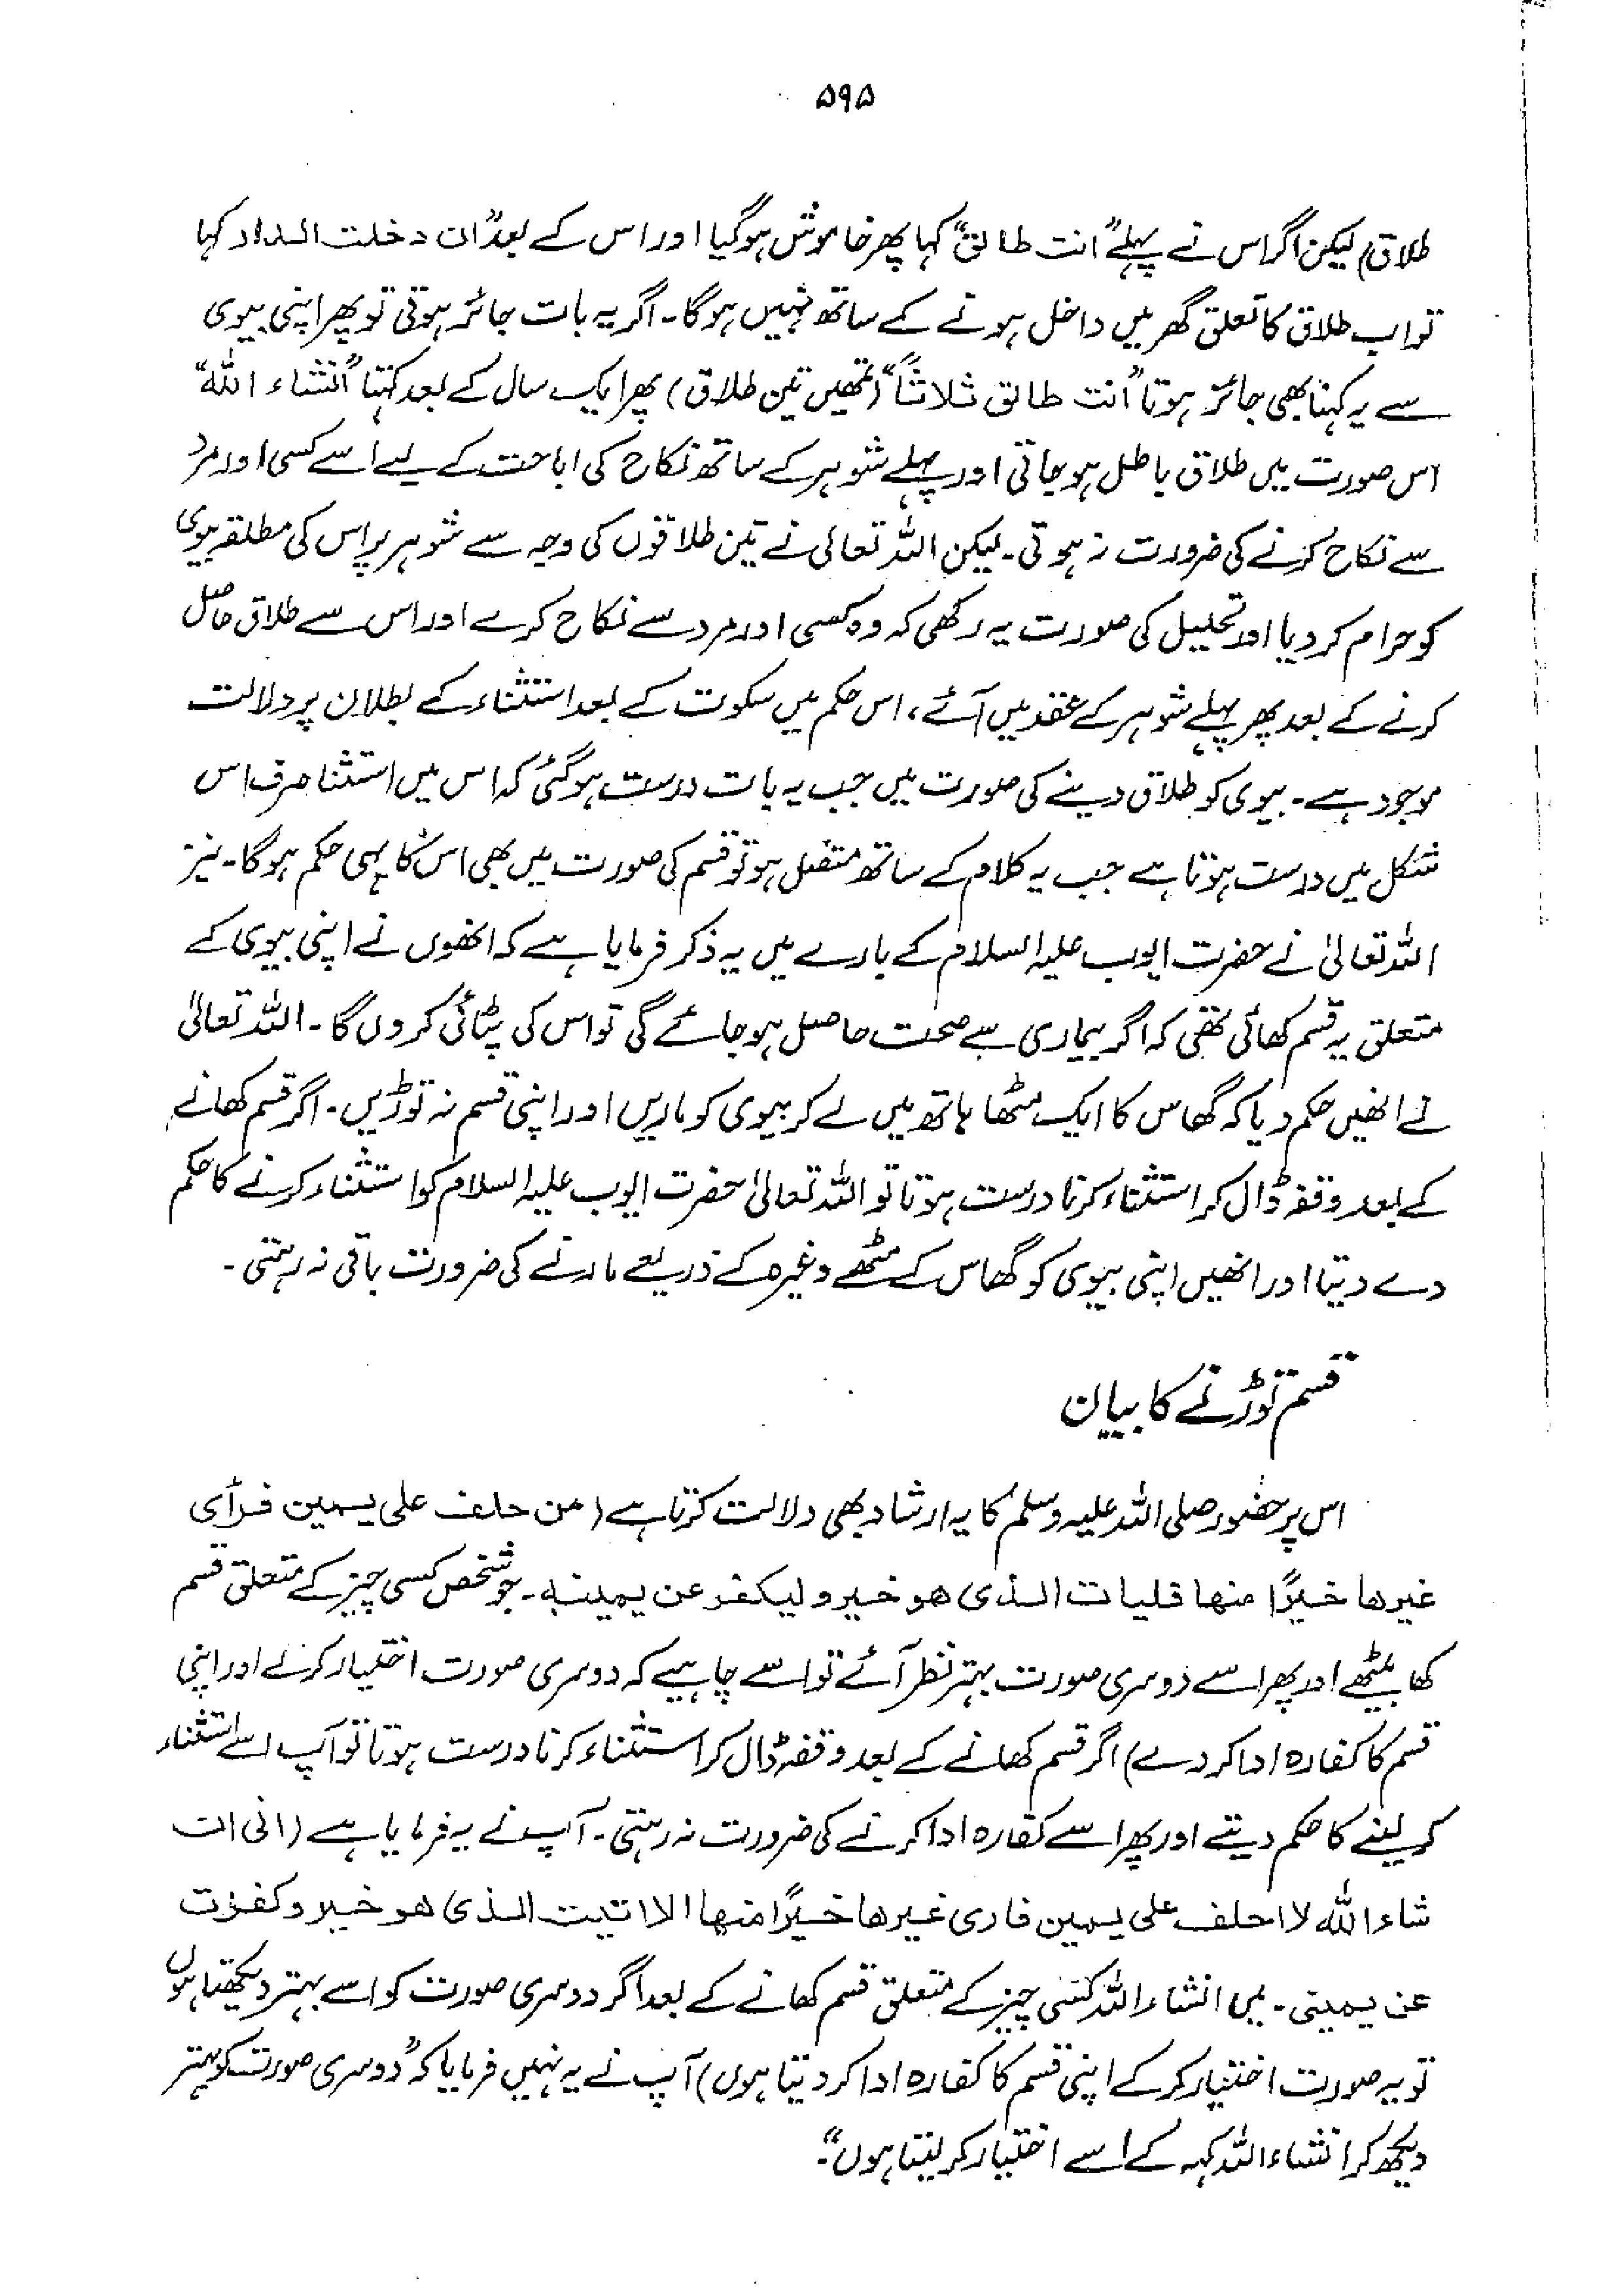 ۵۹۵
طلاق) لیکن اگر اس نے پہلے "انت طالق" کہا پھر خاموش ہوگیا اور اس کے بعد "ان دخلت الدار کہا
تو اب طلاق کا تعلق گھر میں داخل ہونے کے ساتھ نہیں ہوگا۔ اگر یہ بات جائز ہوتی تو پھر اپنی بیوی
سے یہ کہنا بھی جائز ہوتا "انت طالق ثلاثاً" (تمھیں تین طلاق) پھر ایک سال کے بعد کہتا "انشاء اللہ"
اس صورت میں طلاق باطل ہوجاتی اور پہلے شوہر کے ساتھ نکاح کی اباحت کے لیے اسے کسی اور مرد
سے نکاح کرنے کی ضرورت نہ ہوتی۔ لیکن اللہ تعالیٰ نے تین طلاقوں کی وجہ سے شوہر پر اس کی مطلقہ بیوی
کو حرام کردیا اور تحلیل کی صورت یہ رکھی کہ وہ کسی اور مرد سے نکاح کرے اور اس سے طلاق حاصل
کرنے کے بعد پھر پہلے شوہر کے عقد میں آئے، اس حکم میں سکوت کے بعد استثناء کے بطلان پر دلالت
موجود ہے۔ بیوی کو طلاق دینے کی صورت میں جب یہ بات درست ہوگئی کہ اس میں استثنا صرف اس
شکل میں درست ہوتا ہے جب یہ کلام کے ساتھ متصل ہو تو قسم کی صورت میں بھی اس کا یہی حکم ہوگا۔ نیز
اللہ تعالیٰ نے حضرت ایوب علیہ السلام کے بارے میں یہ ذکر فرمایا ہے کہ انھوں نے اپنی بیوی کے
متعلق یہ قسم کھائی تھی کہ اگر بیماری سے صحت حاصل ہوجائے گی تو اس کی پٹائی کروں گا۔ اللہ تعالیٰ
نے انھیں حکم دیا کہ گھاس کا ایک مٹھا ہاتھ میں لے کر بیوی کو ماریں اور اپنی قسم نہ توڑیں۔ اگر قسم کھانے
کے بعد وقفہ ڈال کر استثناء کرنا درست ہوتا تو اللہ تعالیٰ حضرت ایوب علیہ السلام کو استثناء کرنے کا حکم
دے دیتا اور انھیں اپنی بیوی کو گھاس کے مٹھے وغیرہ کے ذریعے مارنے کی ضرورت باقی نہ رہتی۔
قسم توڑنے کا بیان
اس پر حضور صلی اللہ علیہ وسلم کا یہ ارشاد بھی دلالت کرتا ہے (من حلف علی یمین فرأی
غیرھا خیرًا منھا فلیات الذی ھو خیر ولیکفر عن یمینہ۔ جو شخص کسی چیز کے متعلق قسم
کھا بیٹھے اور پھر اسے دوسری صورت بہتر نظر آئے تو اسے چاہیے کہ دوسری صورت اختیار کرلے اور اپنی
قسم کا کفارہ ادا کردے) اگر قسم کھانے کے بعد وقفہ ڈال کر استثناء کرنا درست ہوتا تو آپ اسے استثناء
کرلینے کا حکم دیتے اور پھر اسے کفارہ ادا کرنے کی ضرورت نہ رہتی۔ آپ نے یہ فرمایا ہے (انی ان
شاء اللہ لا احلف علی یمین فاری غیرھا خیرًا منھا الا اتیت الذی ھو خیر وکفرت
عن یمینی۔ میں انشاء اللہ کسی چیز کے متعلق قسم کھانے کے بعد اگر دوسری صورت کو اسے بہتر دیکھتا ہوں
تو یہ صورت اختیار کرکے اپنی قسم کا کفارہ ادا کردیتا ہوں) آپ نے یہ نہیں فرمایا کہ "دوسری صورت کو بہتر
دیکھ کر انشاء اللہ کہہ کے اسے اختیار کرلیتا ہوں"۔